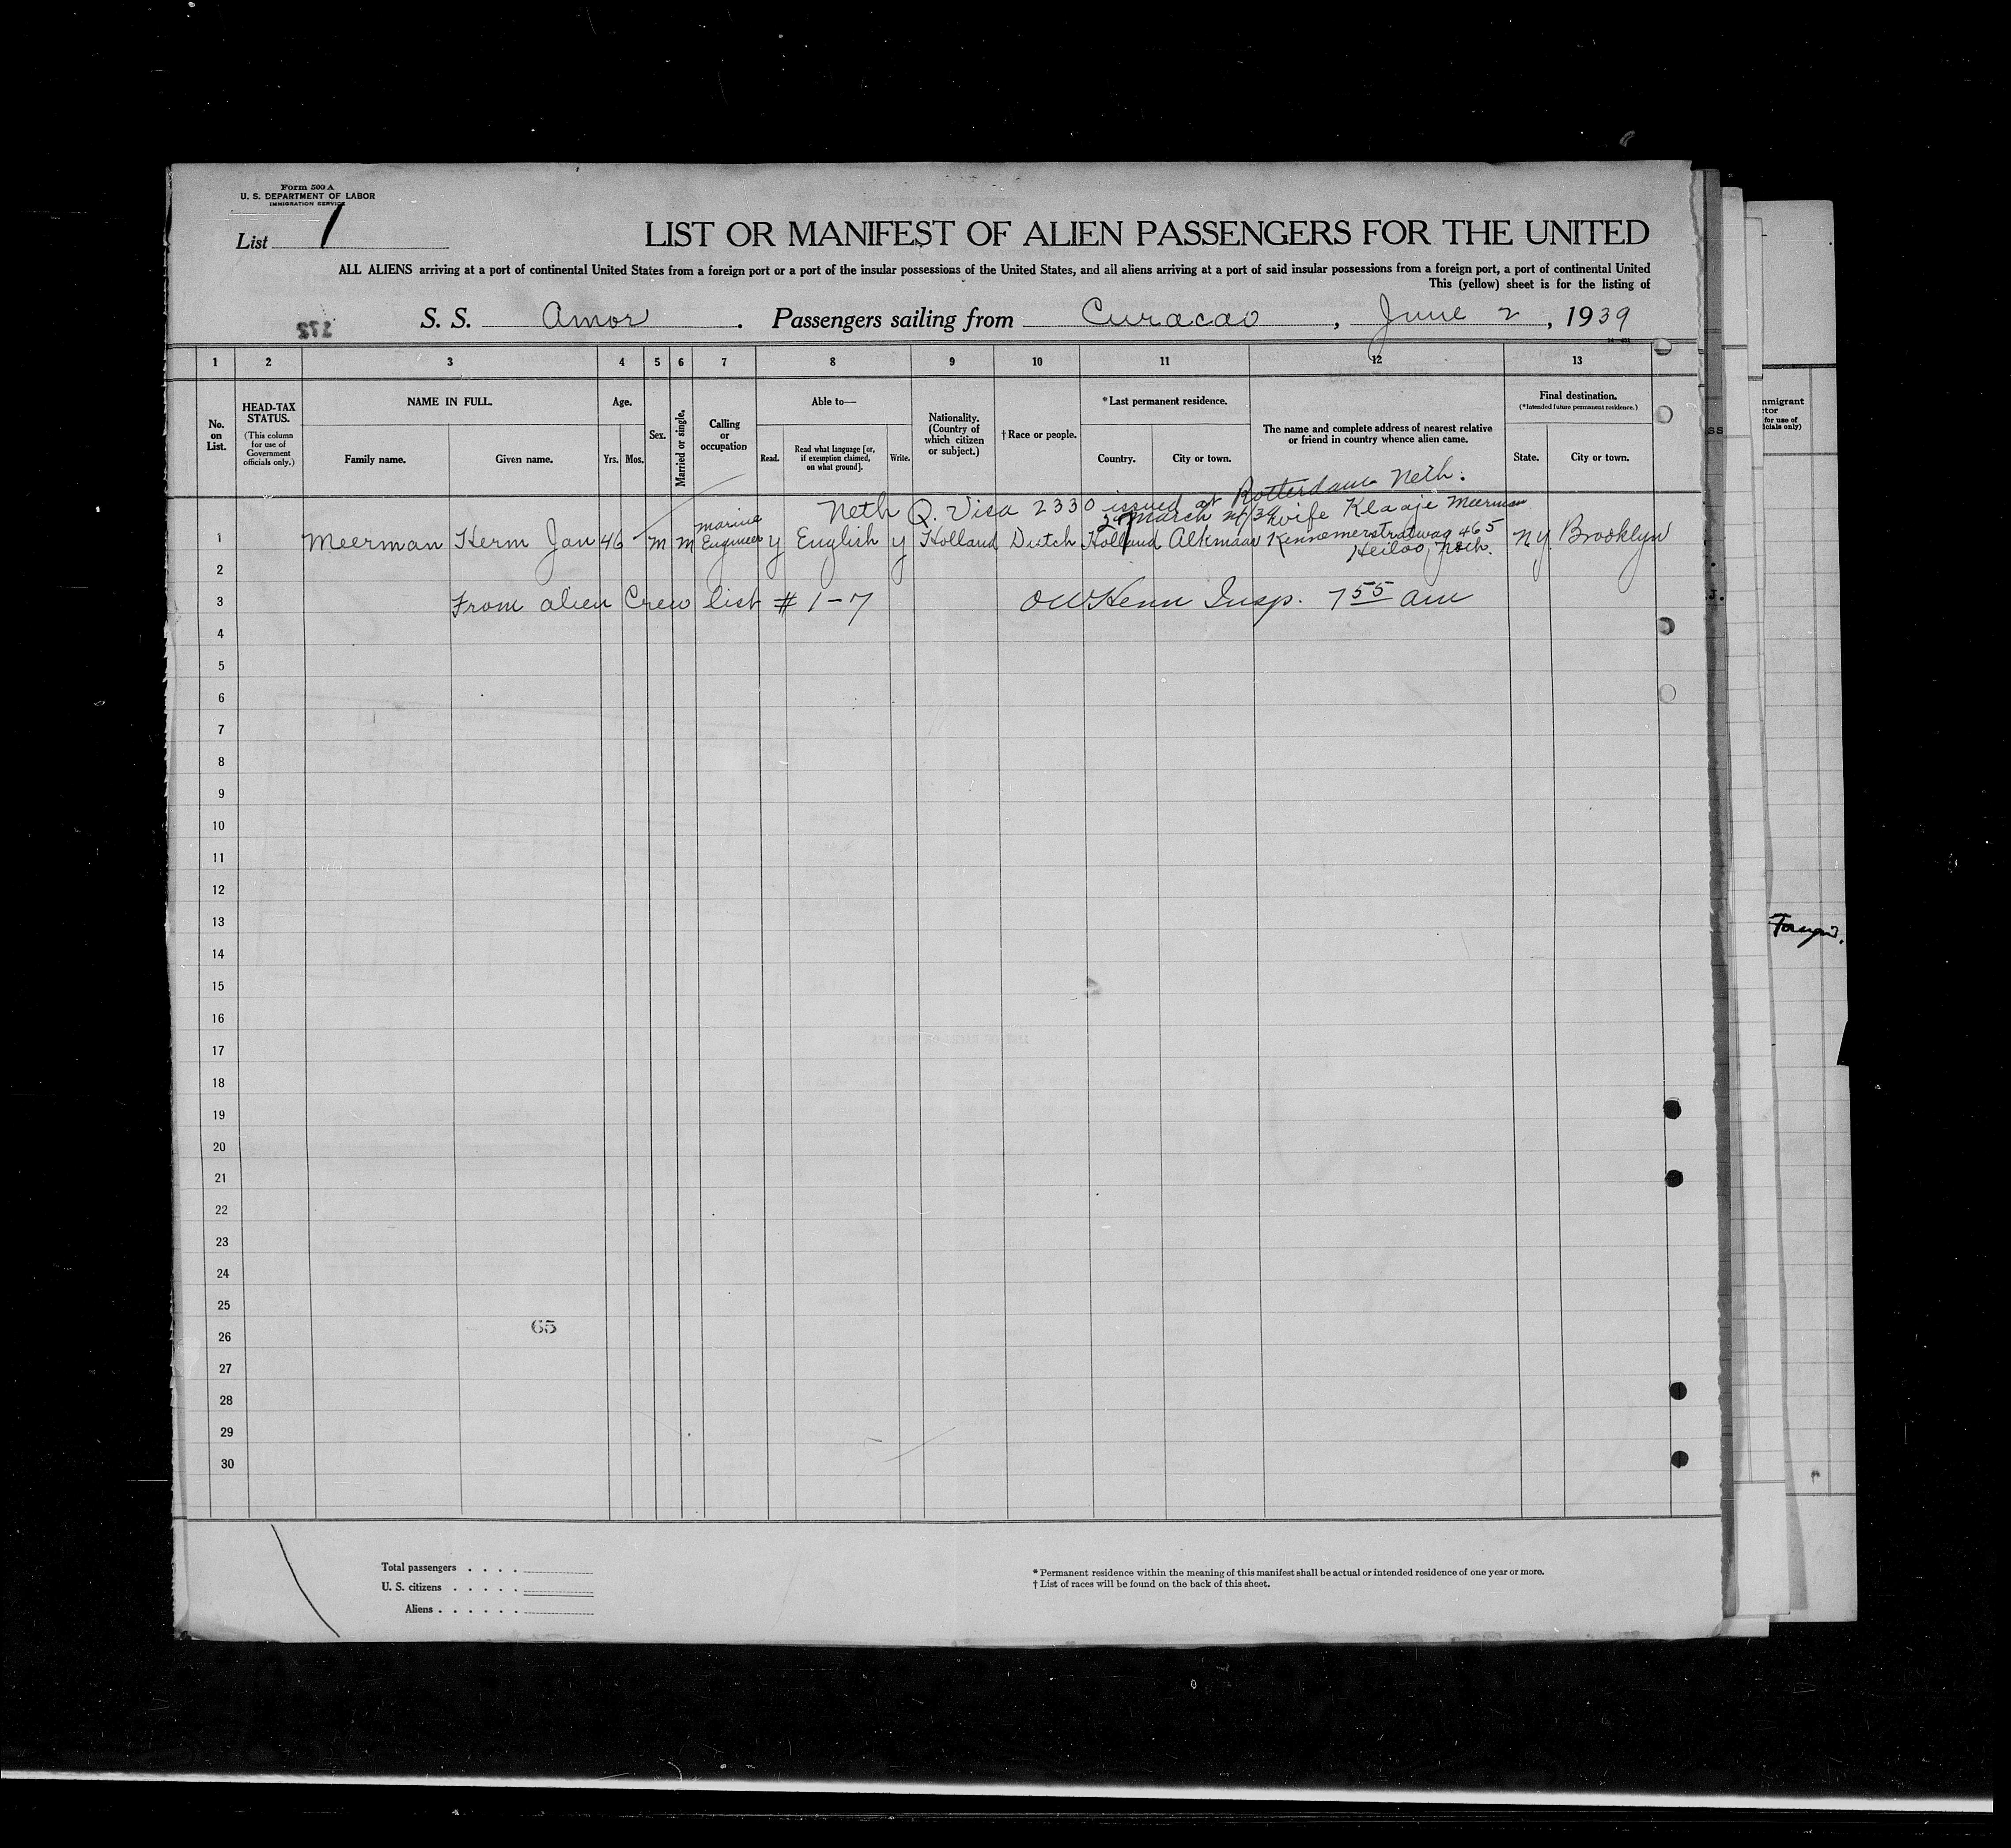 Form 500 A
U. S. DEPARTMENT OF LABOR
IMMIGRATION SERVICE
List 1
LIST OR MANIFEST OF ALIEN PASSENGERS FOR THE UNITED
ALL ALIENS arriving at a port of continental United States from a foreign port or a port of the insular possessions of the United States, and all aliens arriving at a port of said insular possessions from a foreign port, a port of continental United
This (yellow) sheet is for the listing of
S. S. Amor. Passengers sailing from Curacao, June 2, 1939
1 2 3 4 5 6 7 8 9 10 11 12 13
No. on List.
HEAD-TAX STATUS.
(This column for use of Government officials only.)
NAME IN FULL.
Family name. Given name.
Age.
Yrs. Mos.
Sex.
Married or single.
Calling or occupation
Able to—
Read. Read what language [or, if exemption claimed, on what ground]. Write.
Nationality. (Country of which citizen or subject.)
† Race or people.
*Last permanent residence.
Country. City or town.
The name and complete address of nearest relative or friend in country whence alien came.
Final destination.
(*Intended future permanent residence.)
State. City or town.
Neth Q. Visa 2330 issued at Rotterdam Neth.
March wife Klaaje Meerman
1 Meerman Herm Jan 46 - m m Marine Engineer y English y Holland Dutch Holland Alkmaar Kennemerstratwag 465 NY. Brooklyn
Heiloo, Neth.
2
3 From alien Crew list # 1-7 Insp. 7 55 am
4
5
6
7
8
9
10
11
12
13
14
15
16
17
18
19
20
21
22
23
24
25
26
65
27
28
29
30
Total passengers . . . .
U. S. citizens . . . . .
Aliens . . . . . .
* Permanent residence within the meaning of this manifest shall be actual or intended residence of one year or more.
† List of races will be found on the back of this sheet.
Foreign.